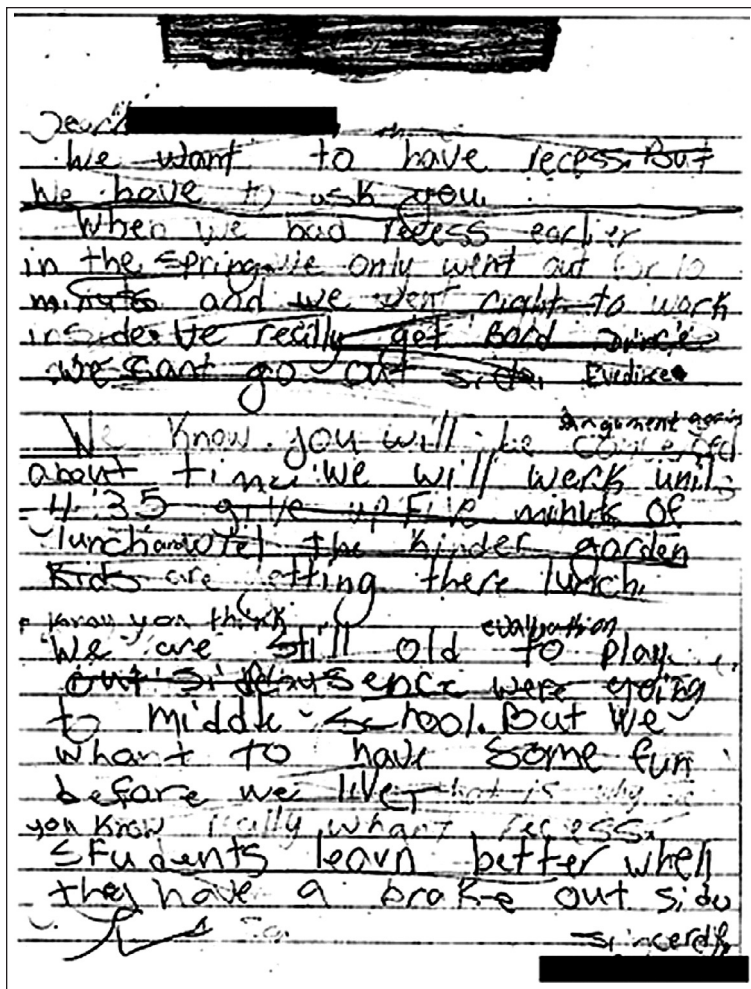 Dear
We want to have recess. But
we have to ask you.
When we had recess earlier
in the spring. We only went out for 10
minuts and we went right to work
inside. We really get Bord since
we cant go out side. Evedince
argument again
We know you will be concerned
about time. We will werk until
4:35 give up Five minuts of
lunch and the kinder garden
Kids are etting there lunch.
I know you think evaluation
We are still old to play
out side sence were going
to middle school. But we
whant to have some fun
before we live, that is why
you know really whant recess.
students learn better when
they have a brake out side
sincerely